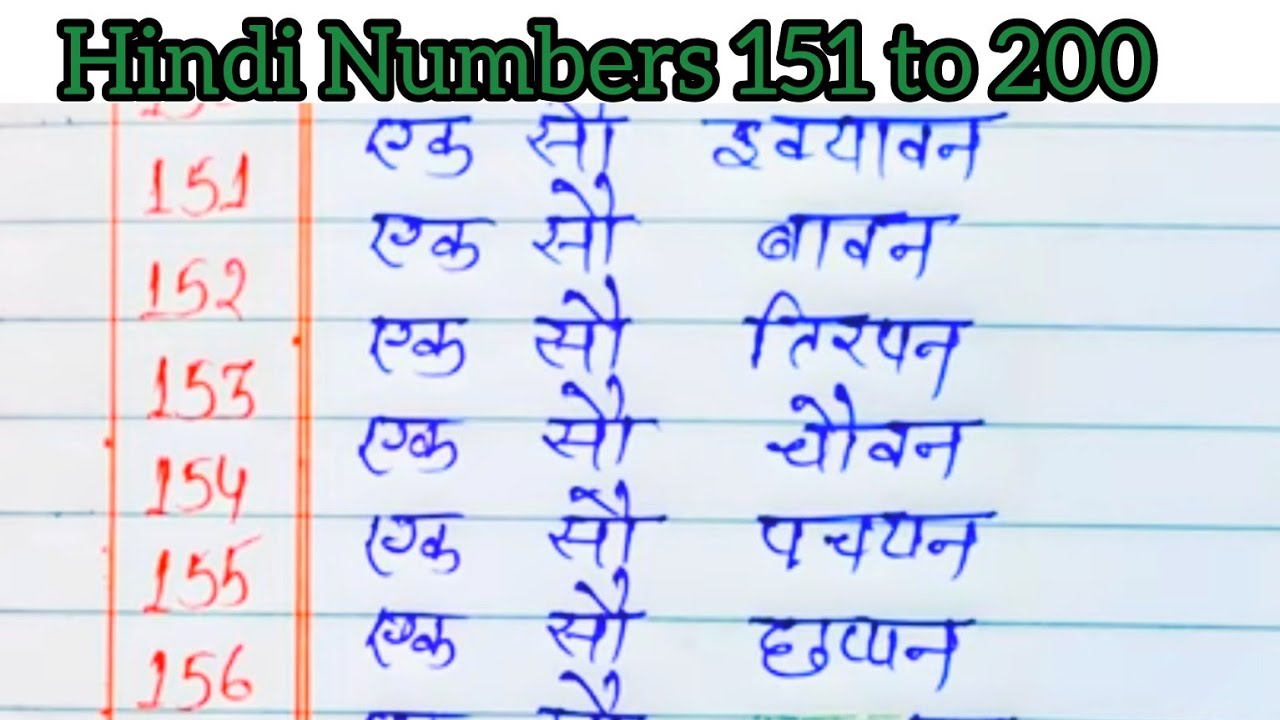 Hindi Numbers 151 to 200
151 एक सौ इक्यावन
152 एक सौ बावन
153 एक सौ तिरपन
154 एक सौ चौवन
155 एक सौ पचपन
156 एक सौ छप्पन